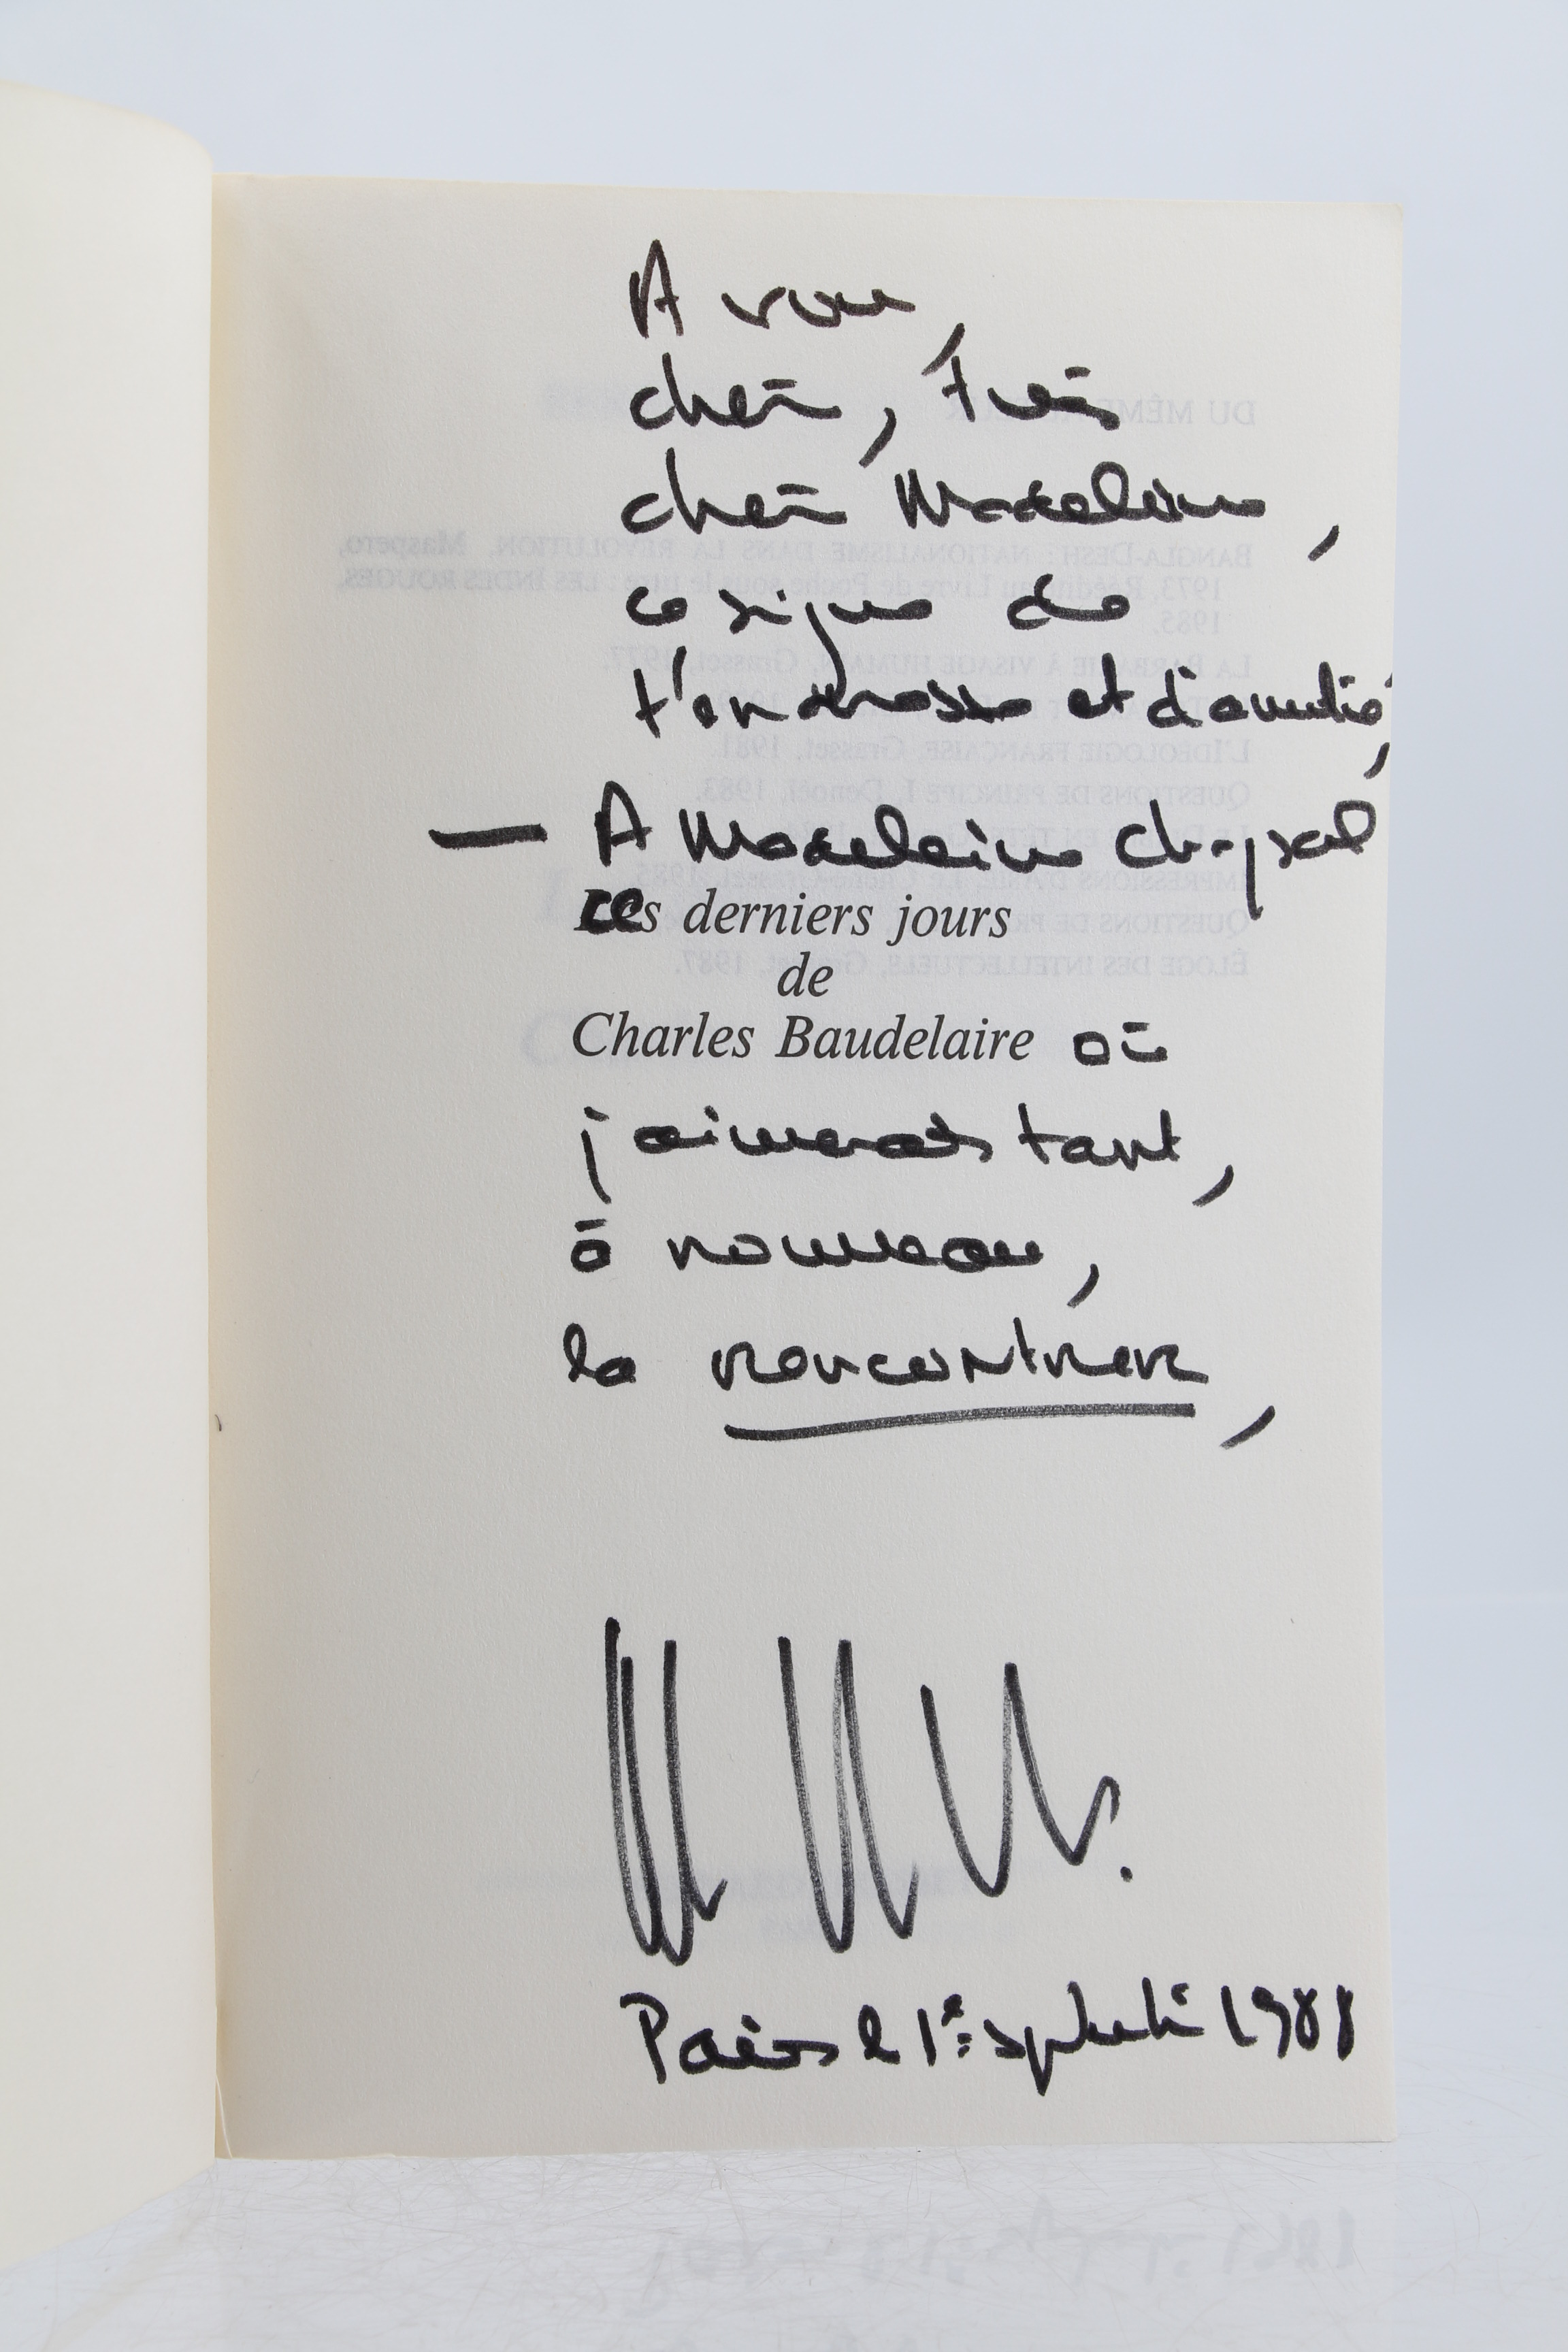 A vous,
chère, très
chère Madeleine,
ce signe de
tendresse et d'amitié,
— A Madeleine Chapsal
Ces derniers jours
de
Charles Baudelaire où
j'aimerais tant,
à nouveau,
la rencontrer,
Paris le 1er septembre 1988
DU MÊME
BANGLA-DESH : NATIONALISME DANS LA RÉVOLUTION, Maspero,
1973. Réédité au Livre de Poche sous le titre : LES INDES ROUGES,
1985.
LA BARBARIE À VISAGE HUMAIN, Grasset, 1977.
L'IDÉOLOGIE FRANÇAISE, Grasset, 1981.
QUESTIONS DE PRINCIPE I, Denoël, 1983.
IMPRESSIONS D'ASIE, Le Chêne-Grasset, 1985.
QUESTIONS DE
ÉLOGE DES INTELLECTUELS, Grasset, 1987.